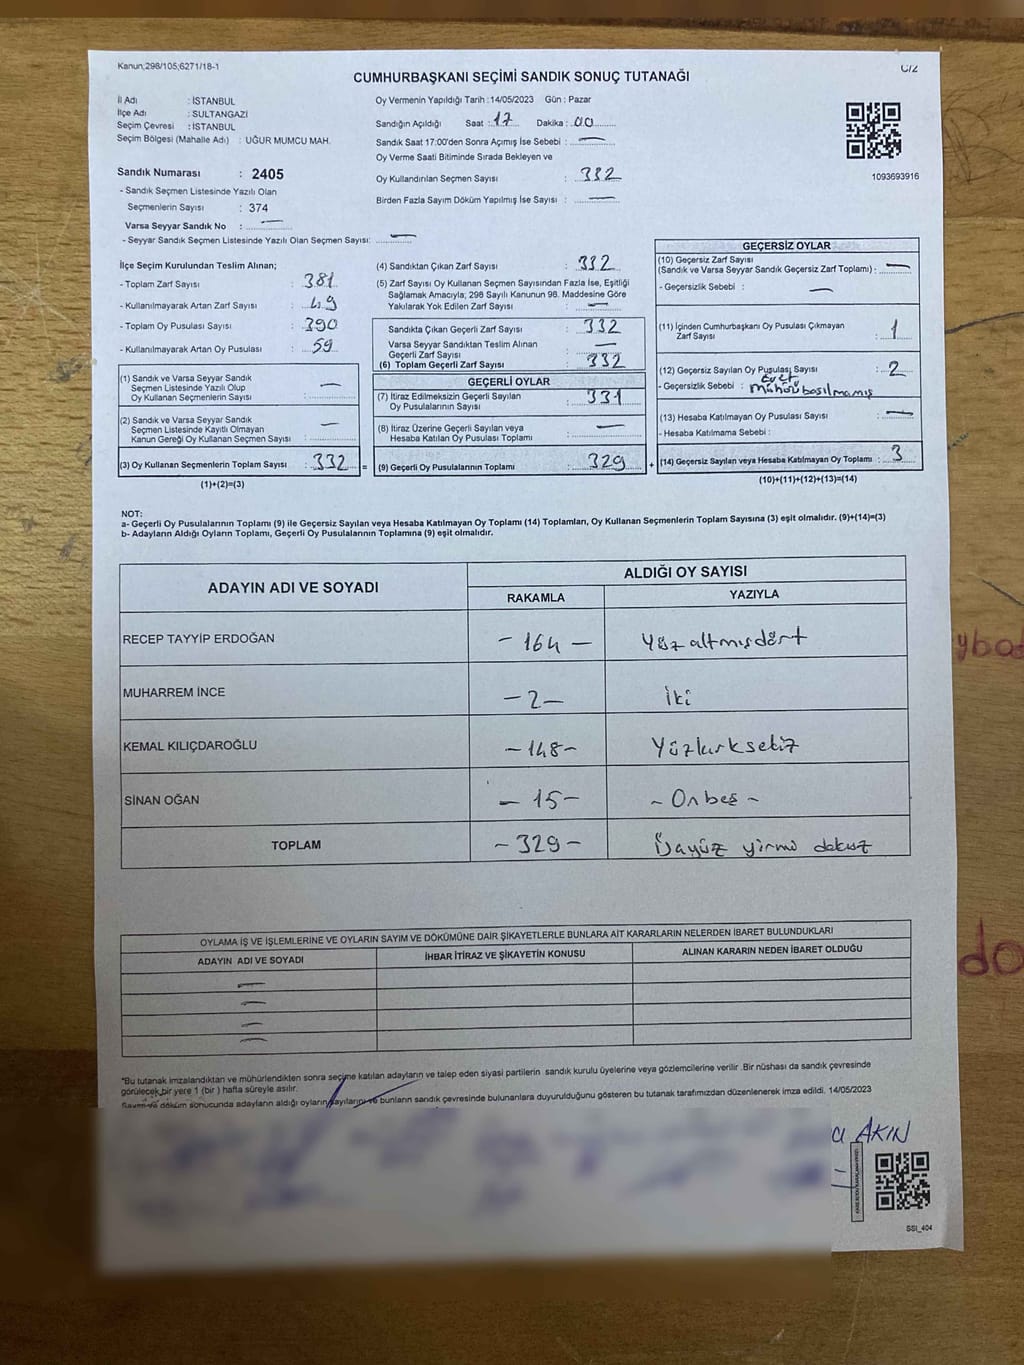 Kanun;298/105;6271/18-1
C/2
CUMHURBAŞKANI SEÇİMİ SANDIK SONUÇ TUTANAĞI
İl Adı : İSTANBUL
İlçe Adı : SULTANGAZİ
Seçim Çevresi : İSTANBUL
Seçim Bölgesi (Mahalle Adı) : UĞUR MUMCU MAH.
Sandık Numarası : 2405
- Sandık Seçmen Listesinde Yazılı Olan
Seçmenlerin Sayısı : 374
Varsa Seyyar Sandık No : —
- Seyyar Sandık Seçmen Listesinde Yazılı Olan Seçmen Sayısı: —
Oy Vermenin Yapıldığı Tarih :14/05/2023 Gün : Pazar
Sandığın Açıldığı Saat : 17 Dakika : 00
Sandık Saat 17:00'den Sonra Açımış İse Sebebi : —
Oy Verme Saati Bitiminde Sırada Bekleyen ve
Oy Kullandırılan Seçmen Sayısı : 332
Birden Fazla Sayım Döküm Yapılmış İse Sayısı : —
1093693916
İlçe Seçim Kurulundan Teslim Alınan;
- Toplam Zarf Sayısı : 381
- Kullanılmayarak Artan Zarf Sayısı : 49
- Toplam Oy Pusulası Sayısı : 390
- Kullanılmayarak Artan Oy Pusulası : 59
(1) Sandık ve Varsa Seyyar Sandık
Seçmen Listesinde Yazılı Olup
Oy Kullanan Seçmenlerin Sayısı : —
(2) Sandık ve Varsa Seyyar Sandık
Seçmen Listesinde Kayıtlı Olmayan
Kanun Gereği Oy Kullanan Seçmen Sayısı : —
(3) Oy Kullanan Seçmenlerin Toplam Sayısı : 332 =
(1)+(2)=(3)
(4) Sandıktan Çıkan Zarf Sayısı : 332
(5) Zarf Sayısı Oy Kullanan Seçmen Sayısından Fazla İse, Eşitliği
Sağlamak Amacıyla; 298 Sayılı Kanunun 98. Maddesine Göre
Yakılarak Yok Edilen Zarf Sayısı : —
Sandıkta Çıkan Geçerli Zarf Sayısı : 332
Varsa Seyyar Sandıktan Teslim Alınan
Geçerli Zarf Sayısı : —
(6) Toplam Geçerli Zarf Sayısı : 332
GEÇERLİ OYLAR
(7) İtiraz Edilmeksizin Geçerli Sayılan
Oy Pusulalarının Sayısı : 331
(8) İtiraz Üzerine Geçerli Sayılan veya
Hesaba Katılan Oy Pusulası Toplamı : —
(9) Geçerli Oy Pusulalarının Toplamı : 329 +
GEÇERSİZ OYLAR
(10) Geçersiz Zarf Sayısı
(Sandık ve Varsa Seyyar Sandık Geçersiz Zarf Toplamı) : —
- Geçersizlik Sebebi : —
(11) İçinden Cumhurbaşkanı Oy Pusulası Çıkmayan
Zarf Sayısı : 1
(12) Geçersiz Sayılan Oy Pusulası Sayısı : 2
- Geçersizlik Sebebi : Evet
mührü basılmamış
(13) Hesaba Katılmayan Oy Pusulası Sayısı : —
- Hesaba Katılmama Sebebi :
(14) Geçersiz Sayılan veya Hesaba Katılmayan Oy Toplamı : 3
(10)+(11)+(12)+(13)=(14)
NOT:
a- Geçerli Oy Pusulalarının Toplamı (9) ile Geçersiz Sayılan veya Hesaba Katılmayan Oy Toplamı (14) Toplamları, Oy Kullanan Seçmenlerin Toplam Sayısına (3) eşit olmalıdır. (9)+(14)=(3)
b- Adayların Aldığı Oyların Toplamı, Geçerli Oy Pusulalarının Toplamına (9) eşit olmalıdır.
ADAYIN ADI VE SOYADI ALDIĞI OY SAYISI
RAKAMLA YAZIYLA
RECEP TAYYİP ERDOĞAN - 164 — Yüz altmışdört
MUHARREM İNCE - 2 — İki
KEMAL KILIÇDAROĞLU - 148 - Yüzkırksekiz
SİNAN OĞAN - 15 - - Onbeş -
TOPLAM - 329 - Üçyüz yirmi dokuz
OYLAMA İŞ VE İŞLEMLERİNE VE OYLARIN SAYIM VE DÖKÜMÜNE DAİR ŞİKAYETLERLE BUNLARA AİT KARARLARIN NELERDEN İBARET BULUNDUKLARI
ADAYIN ADI VE SOYADI İHBAR İTİRAZ VE ŞİKAYETİN KONUSU ALINAN KARARIN NEDEN İBARET OLDUĞU
—
—
—
—
*Bu tutanak imzalandıktan ve mühürlendikten sonra seçime katılan adayların ve talep eden siyasi partilerin sandık kurulu üyelerine veya gözlemcilerine verilir. Bir nüshası da sandık çevresinde
görülecek bir yere 1 (bir ) hafta süreyle asılır.
Sayım ve döküm sonucunda adayların aldığı oyların sayılarını ve bunların sandık çevresinde bulunanlara duyurulduğunu gösteren bu tutanak tarafımızdan düzenlenerek imza edildi. 14/05/2023
AKIN
SSI_404